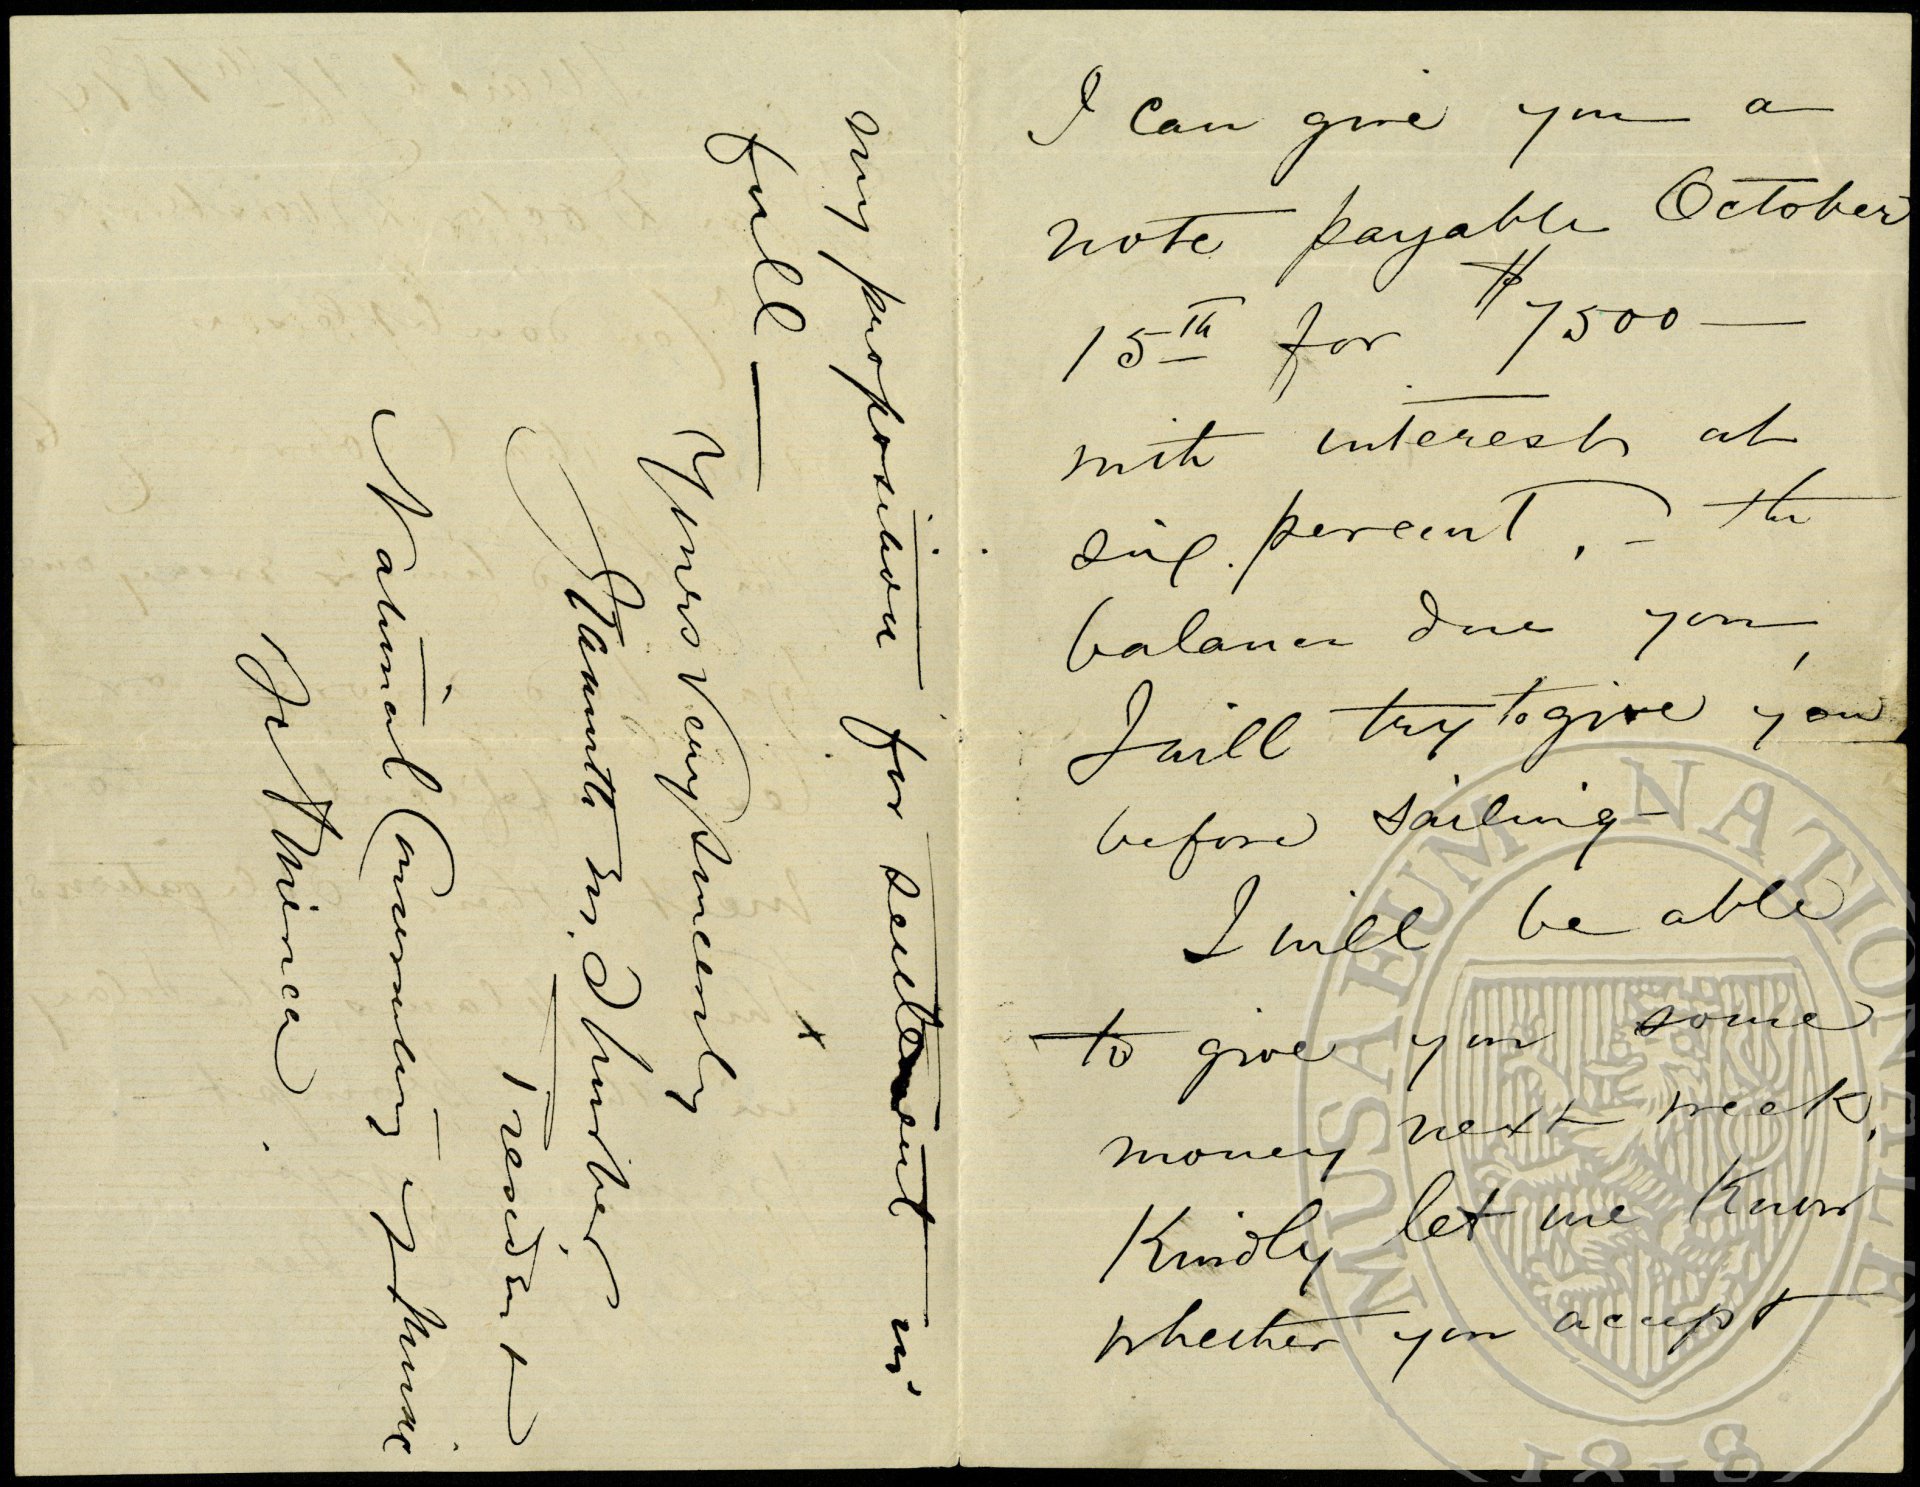 I can give you a
note payable October
15th for $7500 —
with interest at
six. percent, – the
balance due you,
I will try to give you
before sailing –
I will be able
to give you some
money next week.
Kindly let me know
whether you accept
my proposition for settlement in
full —
Yours Very Sincerely
Jeannette M. Thurber
President
National Conservatory of Music
of America.
MUSAEUM NATIONALE
1818